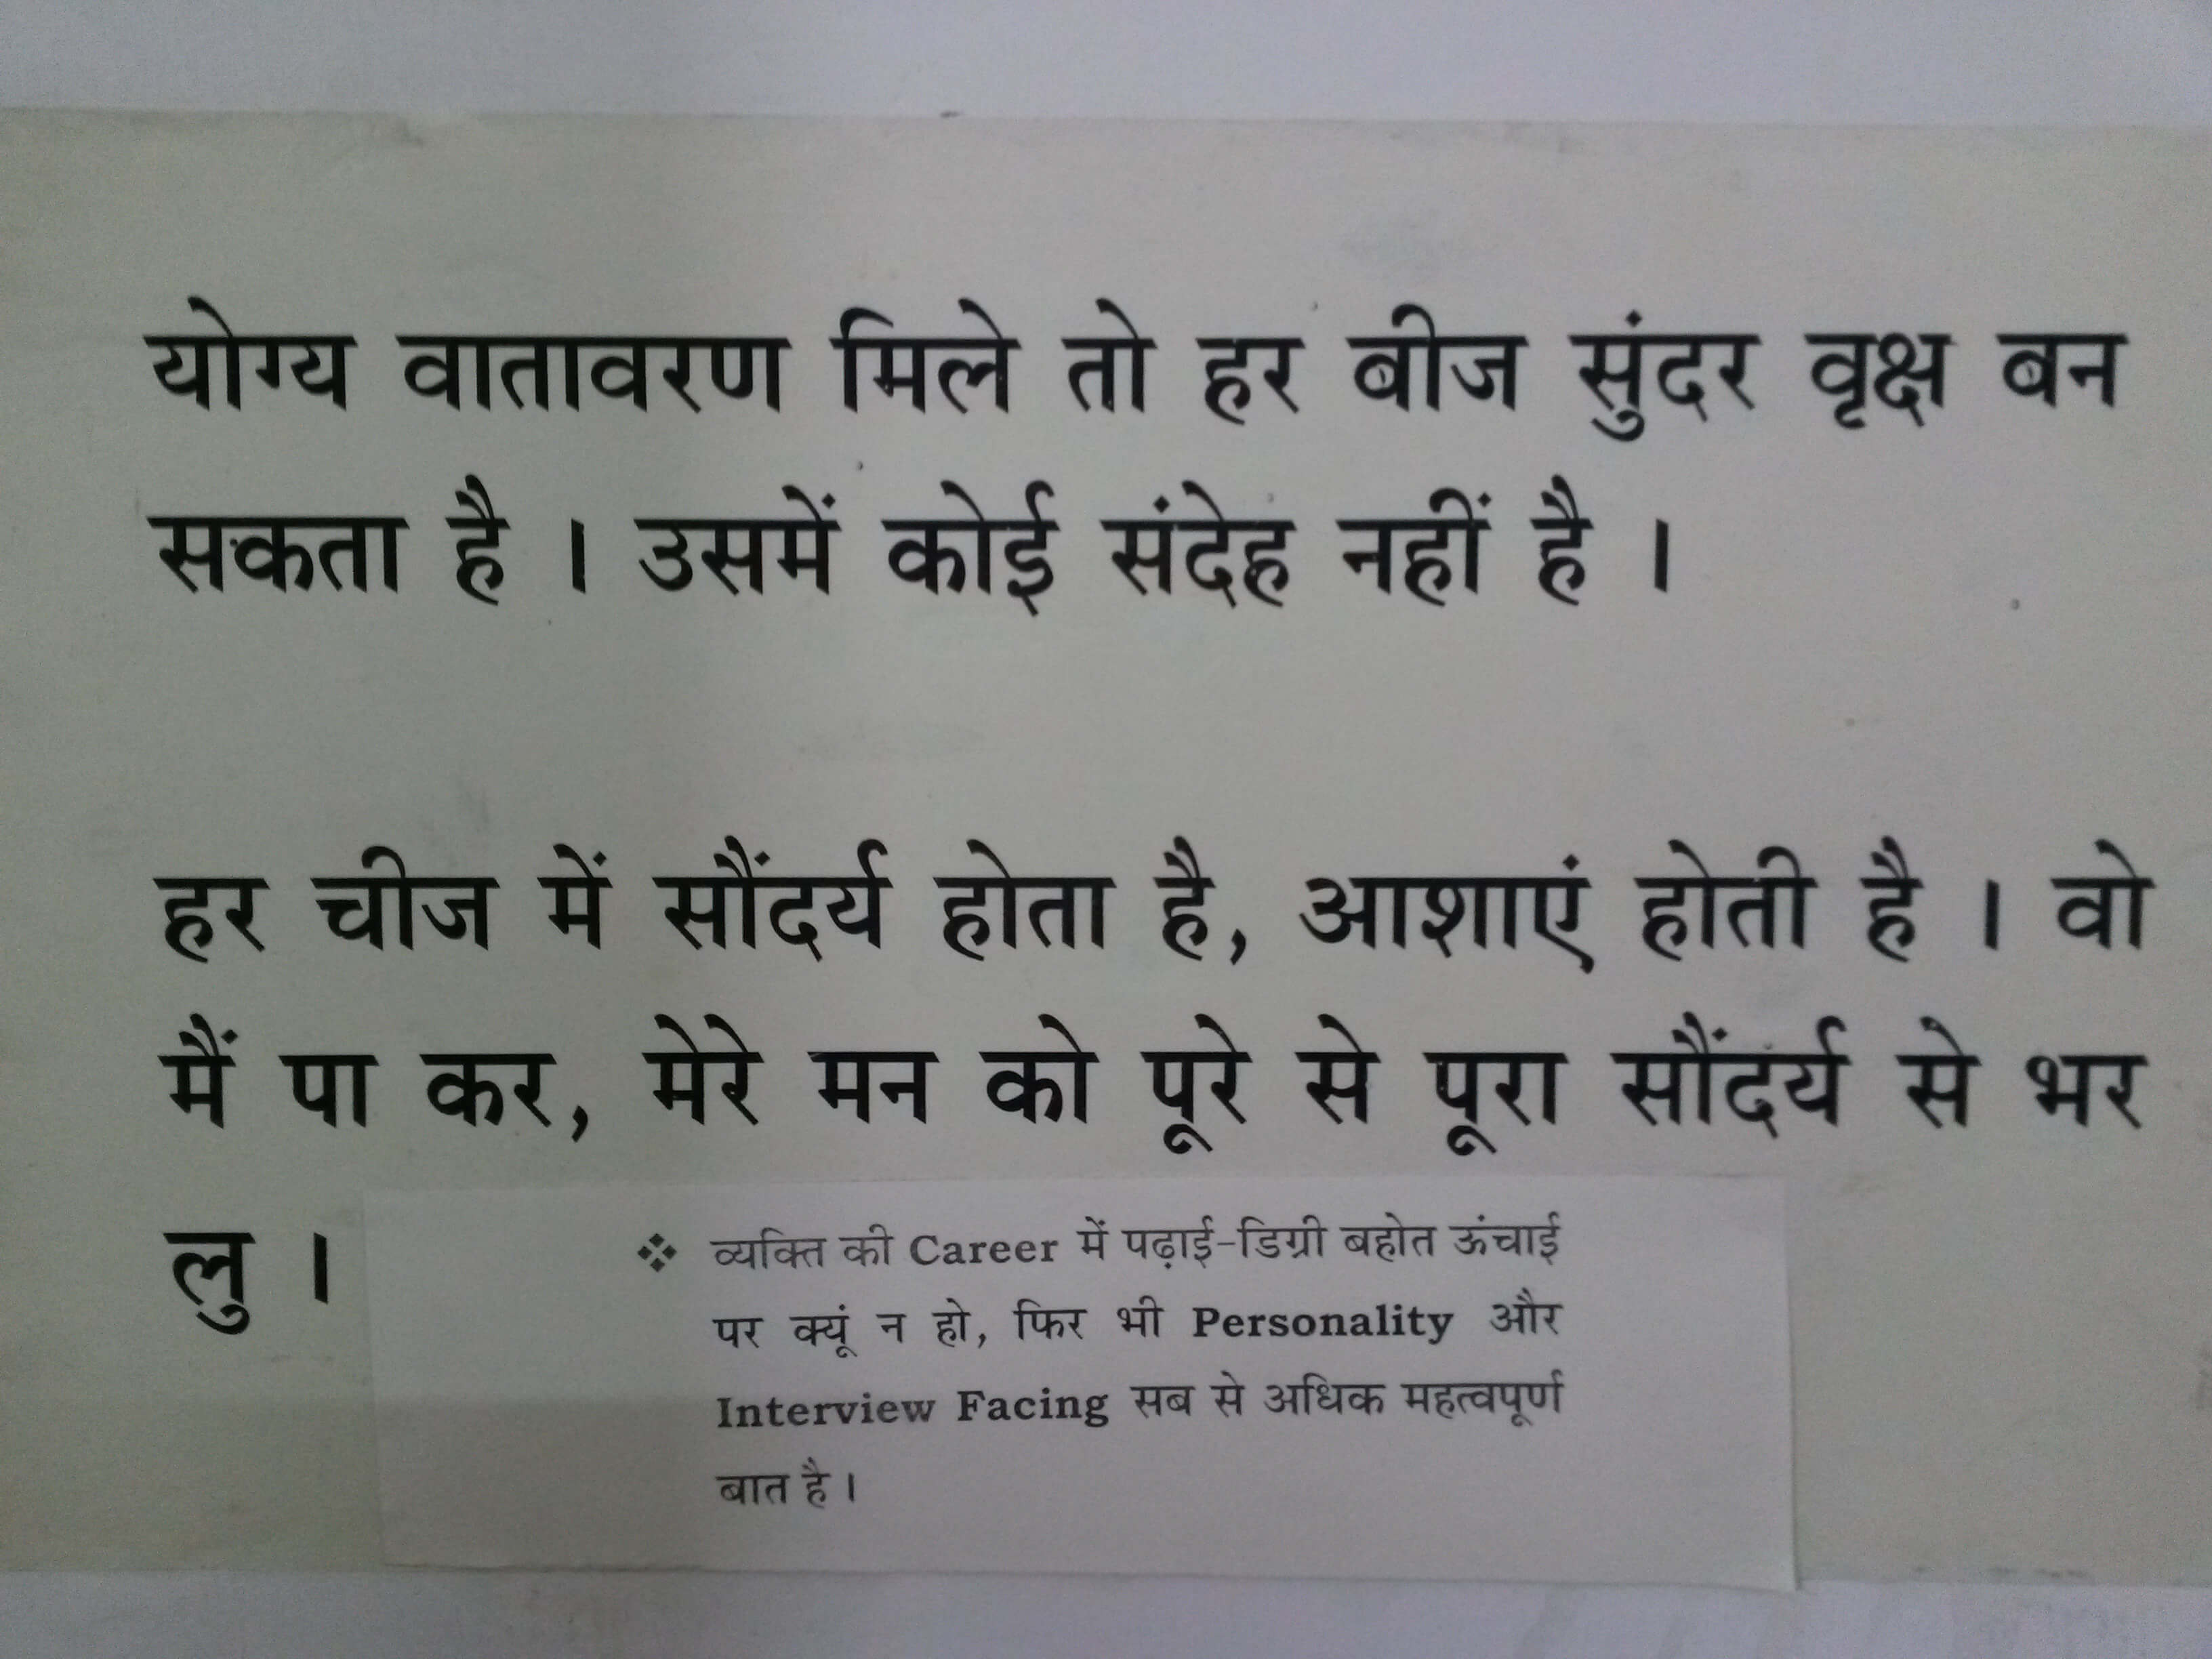 योग्य वातावरण मिले तो हर बीज सुंदर वृक्ष बन
सकता है । उसमें कोई संदेह नहीं है ।
हर चीज में सौंदर्य होता है, आशाएं होती है । वो
मैं पा कर, मेरे मन को पूरे से पूरा सौंदर्य से भर
लु ।
❖ व्यक्ति की Career में पढ़ाई-डिग्री बहोत ऊंचाई
पर क्यूं न हो, फिर भी Personality और
Interview Facing सब से अधिक महत्वपूर्ण
बात है ।